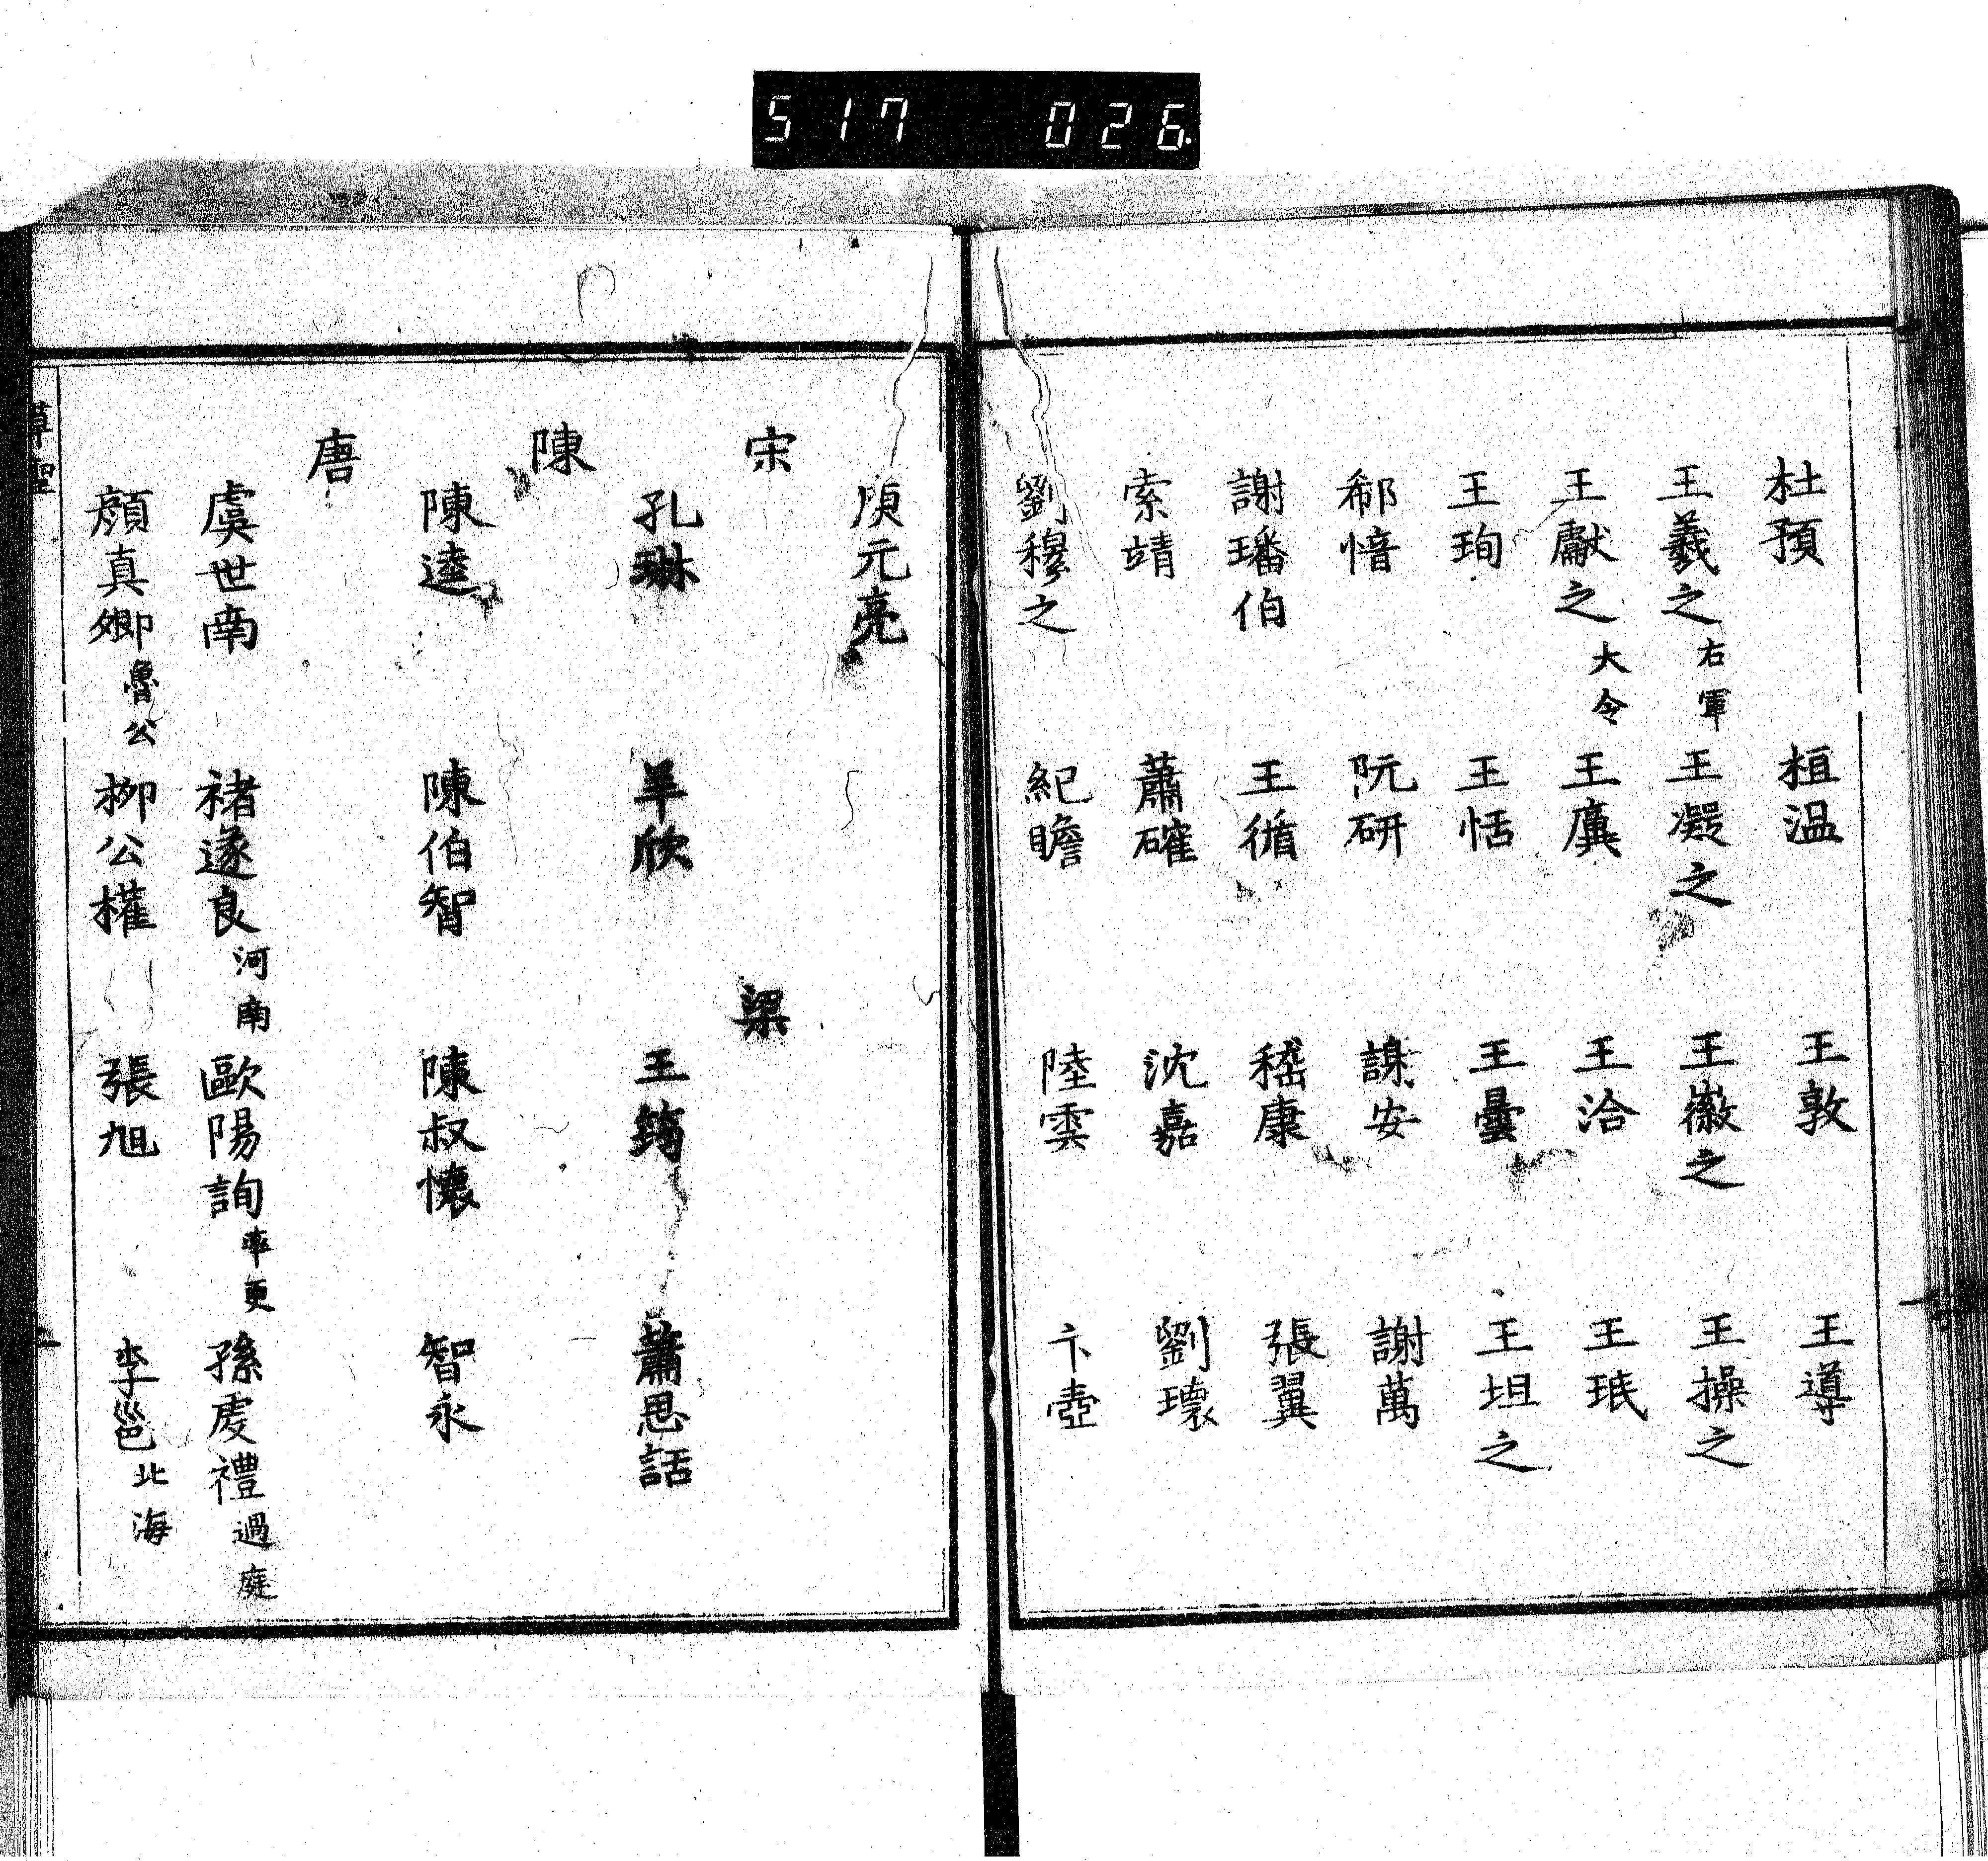 517 026
杜預 桓温 王敦 王導
王羲之右軍 王凝之 王徽之 王操之
王獻之大令 王廙 王洽 王珉
王珣 王恬 王曇 王坦之
郗愔 阮研 謝安 謝萬
謝璠伯 王循 嵇康 張翼
索靖 蕭確 沈嘉 劉瓌
劉穆之 紀瞻 陸雲 卞壼
庾元亮
宋 梁
孔琳 羊欣 王筠 蕭思話
陳
陳逵 陳伯智 陳叔懷 智永
唐
虞世南 褚遂良河南 歐陽詢率更 孫虔禮過庭
顏真卿魯公 柳公權 張旭 李邕北海
草聖